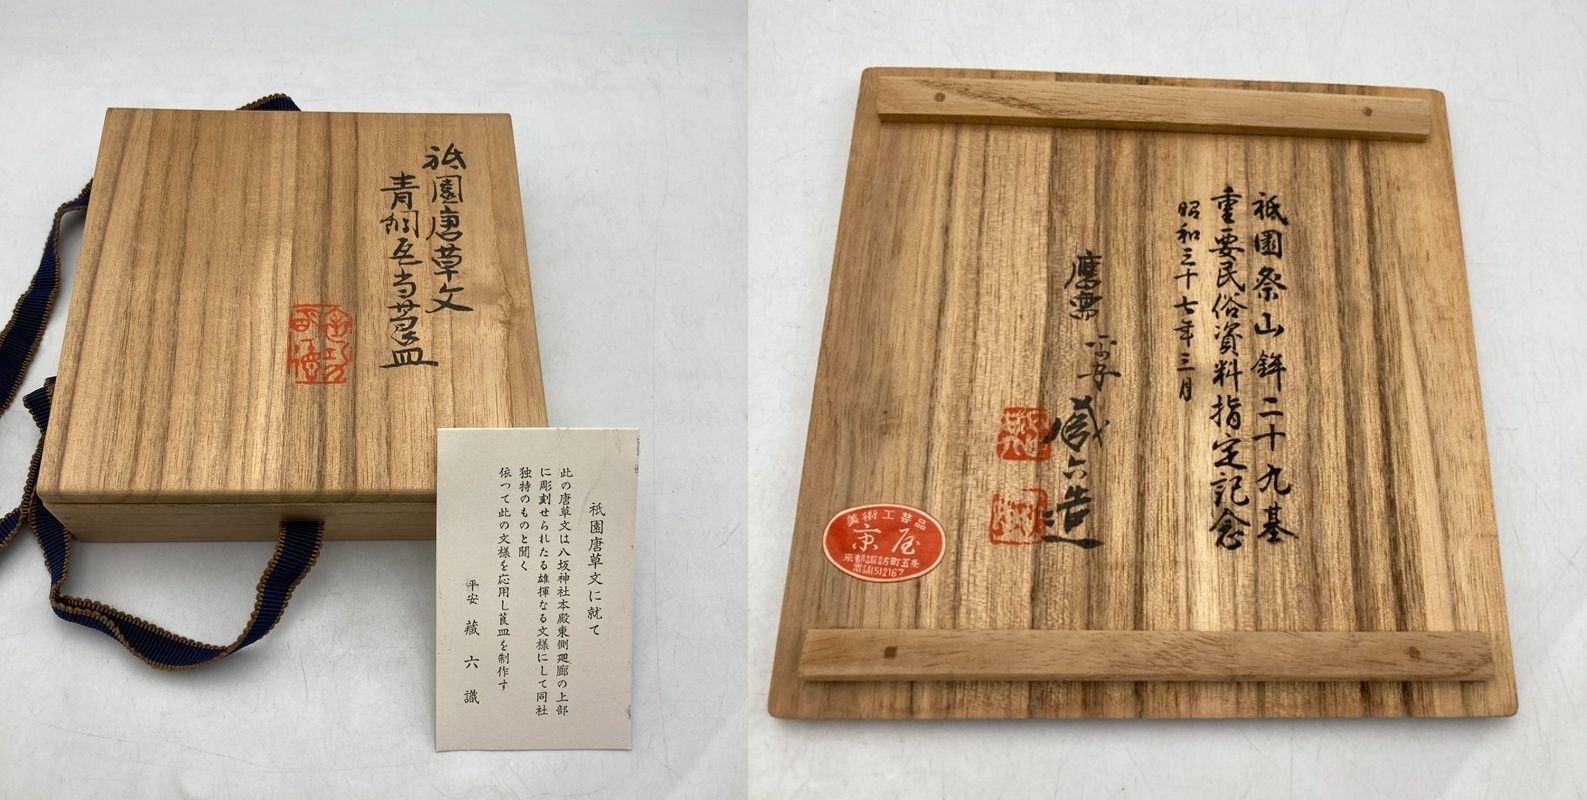 祇園唐草文
青銅瓦当莨皿
祇園唐草文に就て
此の唐草文は八坂神社本殿東側廻廊の上部
に彫刻せられたる雄揮なる文様にして同社
独特のものと聞く
依つて此の文様を応用し莨皿を制作す
平安 蔵六 識
祇園祭山鉾二十九基
重要民俗資料指定記念
昭和三十七年三月
應需 平安 蔵六造
美術工芸品
京屋
京都諏訪町五条
電話(5)2167